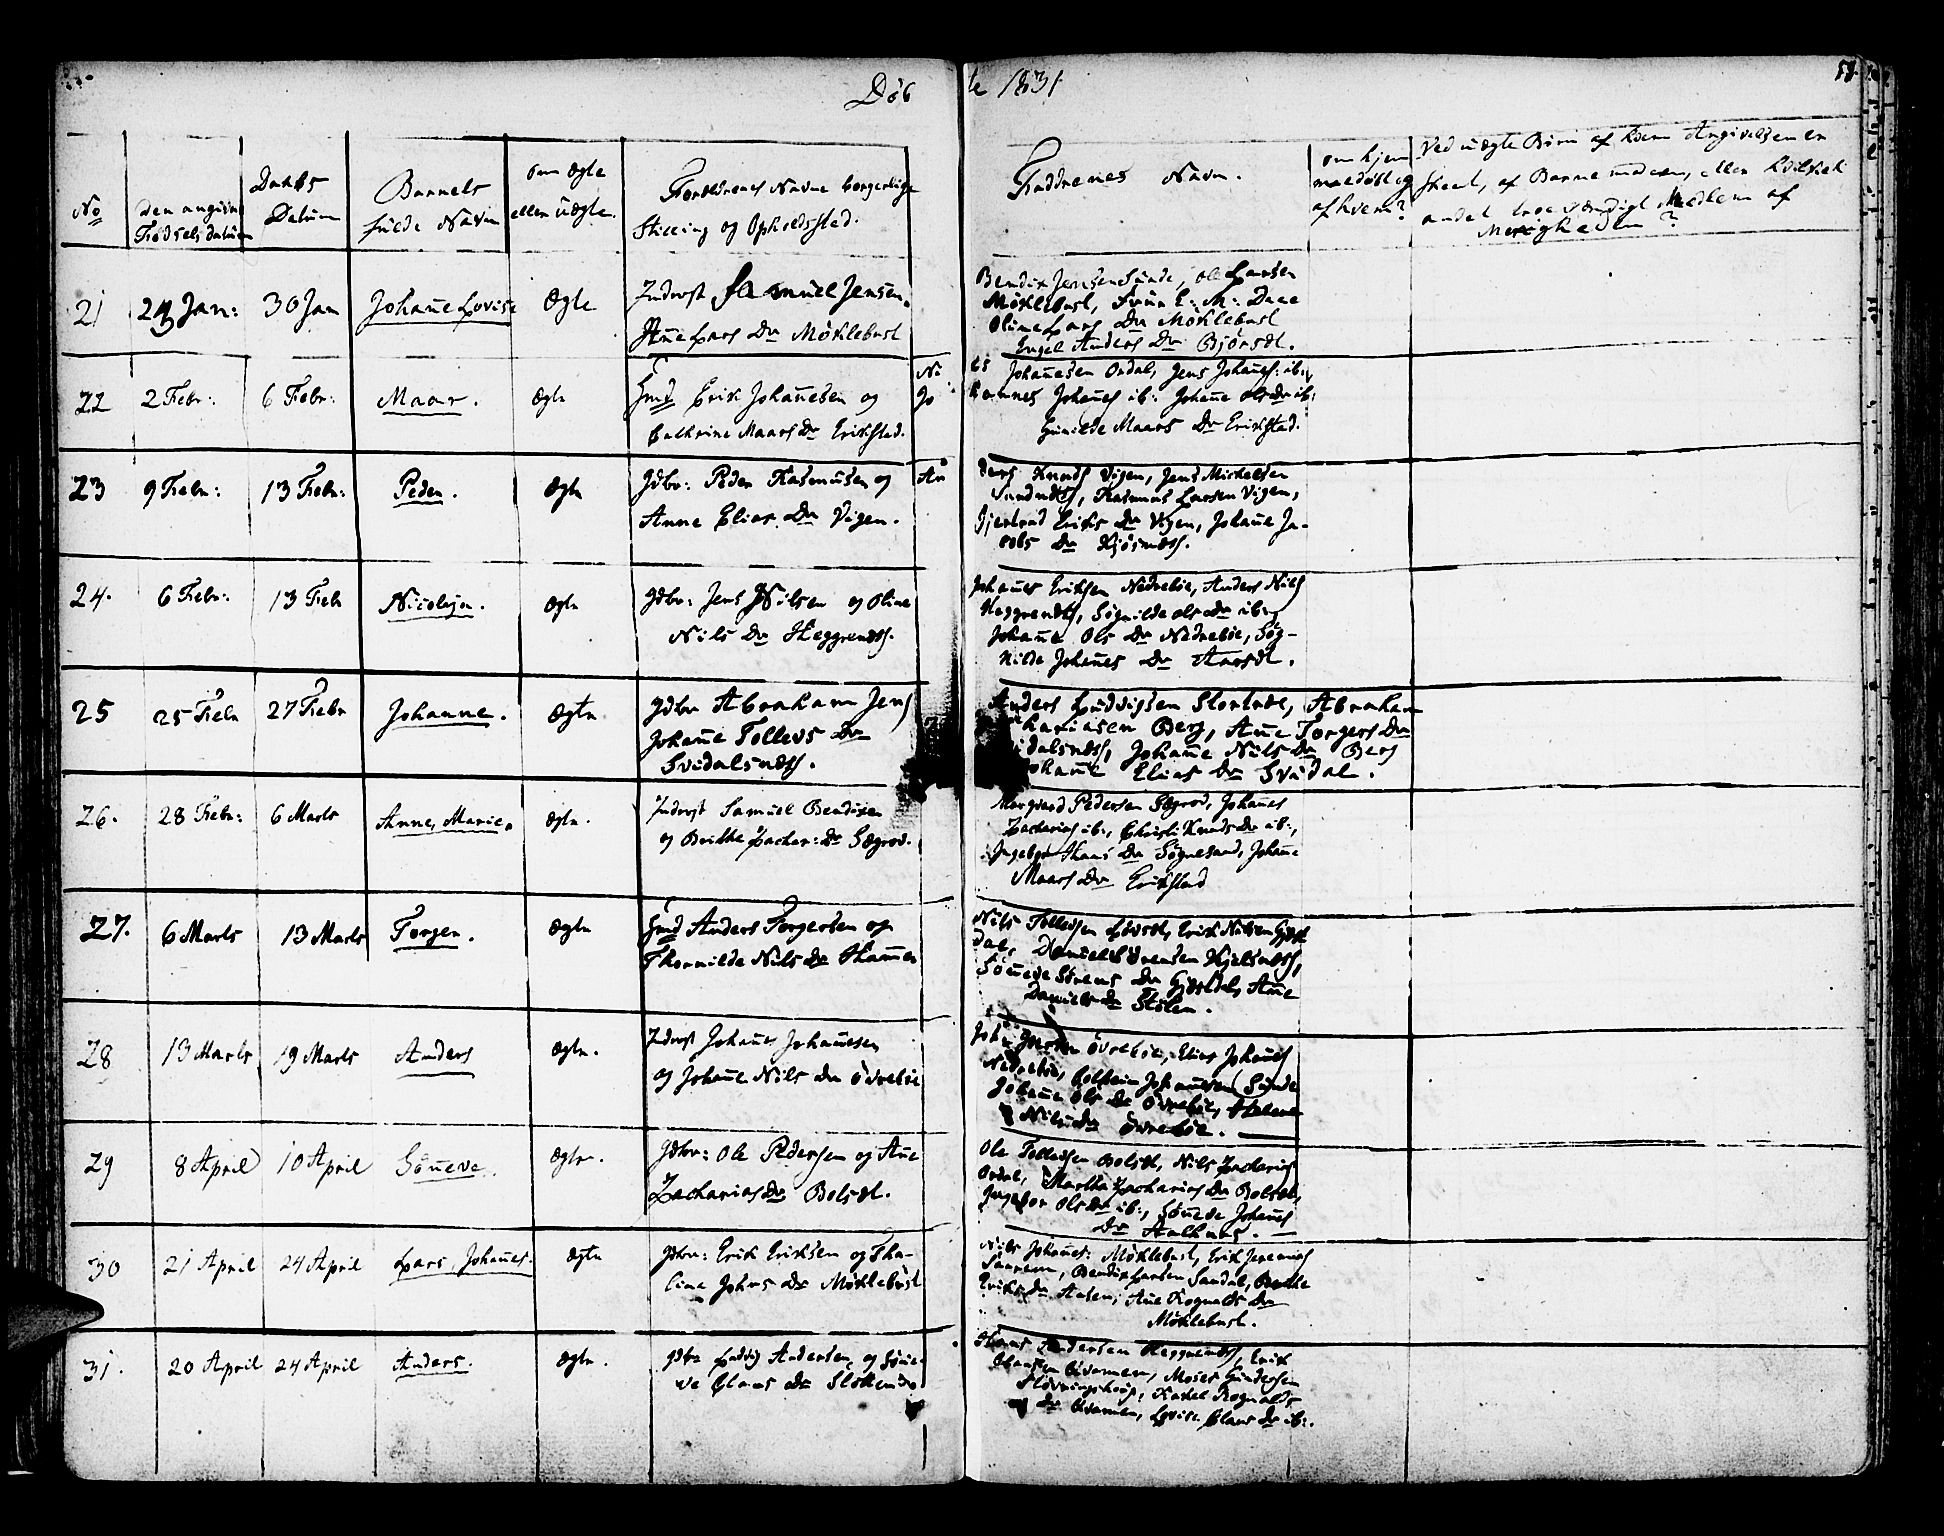 Døb
te 1831
No
den angivne
Fødselsdatum
Daabs
Datum
Barnets
fulde Navn
om ægte
eller uægte.
Forældrenes Navne borgerlige
Stilling og Opholdssted.
Faddrenes Navn.
om hjem
maedøbt og
af hvem?
Ved uægte Børn af hvem Angivelsen er
skeet, af Barnemoderen, eller hvilket
andet troeværdigt Medlem af
Menigheden?
21 29 Jan: 30 Jan Johanne Lovise Ægte
Inderst Samuel Jensen,
Anne Lars Dr Møklebust
Bendix Jensen Sunde, Ole Larsen
Møklebust,
Oline Lars Dr Møklebust
Engel Anders Dr Bjørsdt.
22 2 Febr: 6 Febr: Maar. ægte
Gmd Erik Johannesen og
Cathrine Maars Dr Erikstad.
Ni
Jo
ls Johannesen Ordal, Jens Johannes: ib:,
hannes Johannes ib: Johanne Ols Dr ib:
Gunilde Maars Dr Erikstad.
23 9 Febr: 13 Febr: Peder. ægte
Gdbr: Peder Rasmusen og
Anne Elias Dr Vigen.
An
ders Knuds Vigen, Jens Mickelsen
Sundnæs, Rasmus Larsen Vigen,
Gjertrud Eriks Dr Vigen, Johanne Ja-
cobs Dr Kjøsnæs.
24. 6 Febr: 13 Febr Nicolaja. ægte
Gdbr: Jens Nilsen og Oline
Nils Dr Heggrenæs.
Johannes Eriksen Nedrebøe, Anders Nils
Heggrenæs, Søgnilde Ols Dr ib:,
Johanne Ols Dr Nedrebøe, Søg-
nilde Johannes Dr Aarsdt.
25 25 Febr 27 Febr Johanne. ægte
Gdbr Abraham Jens
Johanne Tollevs Dr
Svidalsnæs.
Anders Ludvigsen Stortræe, Abraham
chariasen Berg, Anne Torgers Dr
idalsnæs, Johanne Nils Dr Berg
ohanne Elias Dr Svidal.
26. 28 Febr: 6 Marts Anne, Marie. ægte.
Inderst Samuel Bendixen
og Brithe Zachar: Dr Sægrov.
Margvard Pedersen Sægrov, Johannes
Zacharias ib:, Christi Knuds Dr ib:,
Ingebor Hans Dr Søgnesand, Johanne
Maars Dr Erikstad
27. 6 Marts 13 Marts Torger. ægte
Gmd Anders Torgersen og
Thornilde Nils Dr Hammer
Nils Tollevsen Løvset, Erik Nilsen Gjest
dal, Daniel Sørensen Kjelsnæs,
Sønneve Sørens Dr Gjestdal, Anne
Daniels Dr Stølen.
28 13 Marts 19 Marts Anders ægte.
Inderst Johannes Johannesen
og Johanne Nils Dr Øvrebøe
Øvrebøe, Elias Johannes
Nedrebøe, Johannesen Sunde
Johanne Ols Dr Øvrebøe, Helene
Nils Dr Øvrebøe.
29 8 April 10 April Sønneve. ægte.
Gdbr: Ole Pedersen og Anne
Zacharias Dr Bolsdt.
Ole Tollevsen Bolsdt, Nils Zacharias
Ordal, Martha Zacharias Dr Bolsdt,
Ingebor Ols Dr ib:, Sønneve Johannes
Dr Aalhus.
30 21 April 24 April Lars, Johannes. ægte
Gdbr: Erik Eriksen og Tha-
line Johns Dr Møklebust
Nils Johannes: Møklebust, Erik Jeremias
Bendix Larsen Sandal, Brithe
Eriks Dr Aasen, Anne Rognalds Dr
Møklebust.
31. 20 April 24 April Anders. ægte.
Gdbr Ludvig Andersen og Sønne-
ve Claus Dr
Hans Andersen Heggrenæs, Erik
Clausen Qvamen, Moses Gundersen
Rognalds
Dr Qvamen, Lovise Claus Dr ib:.